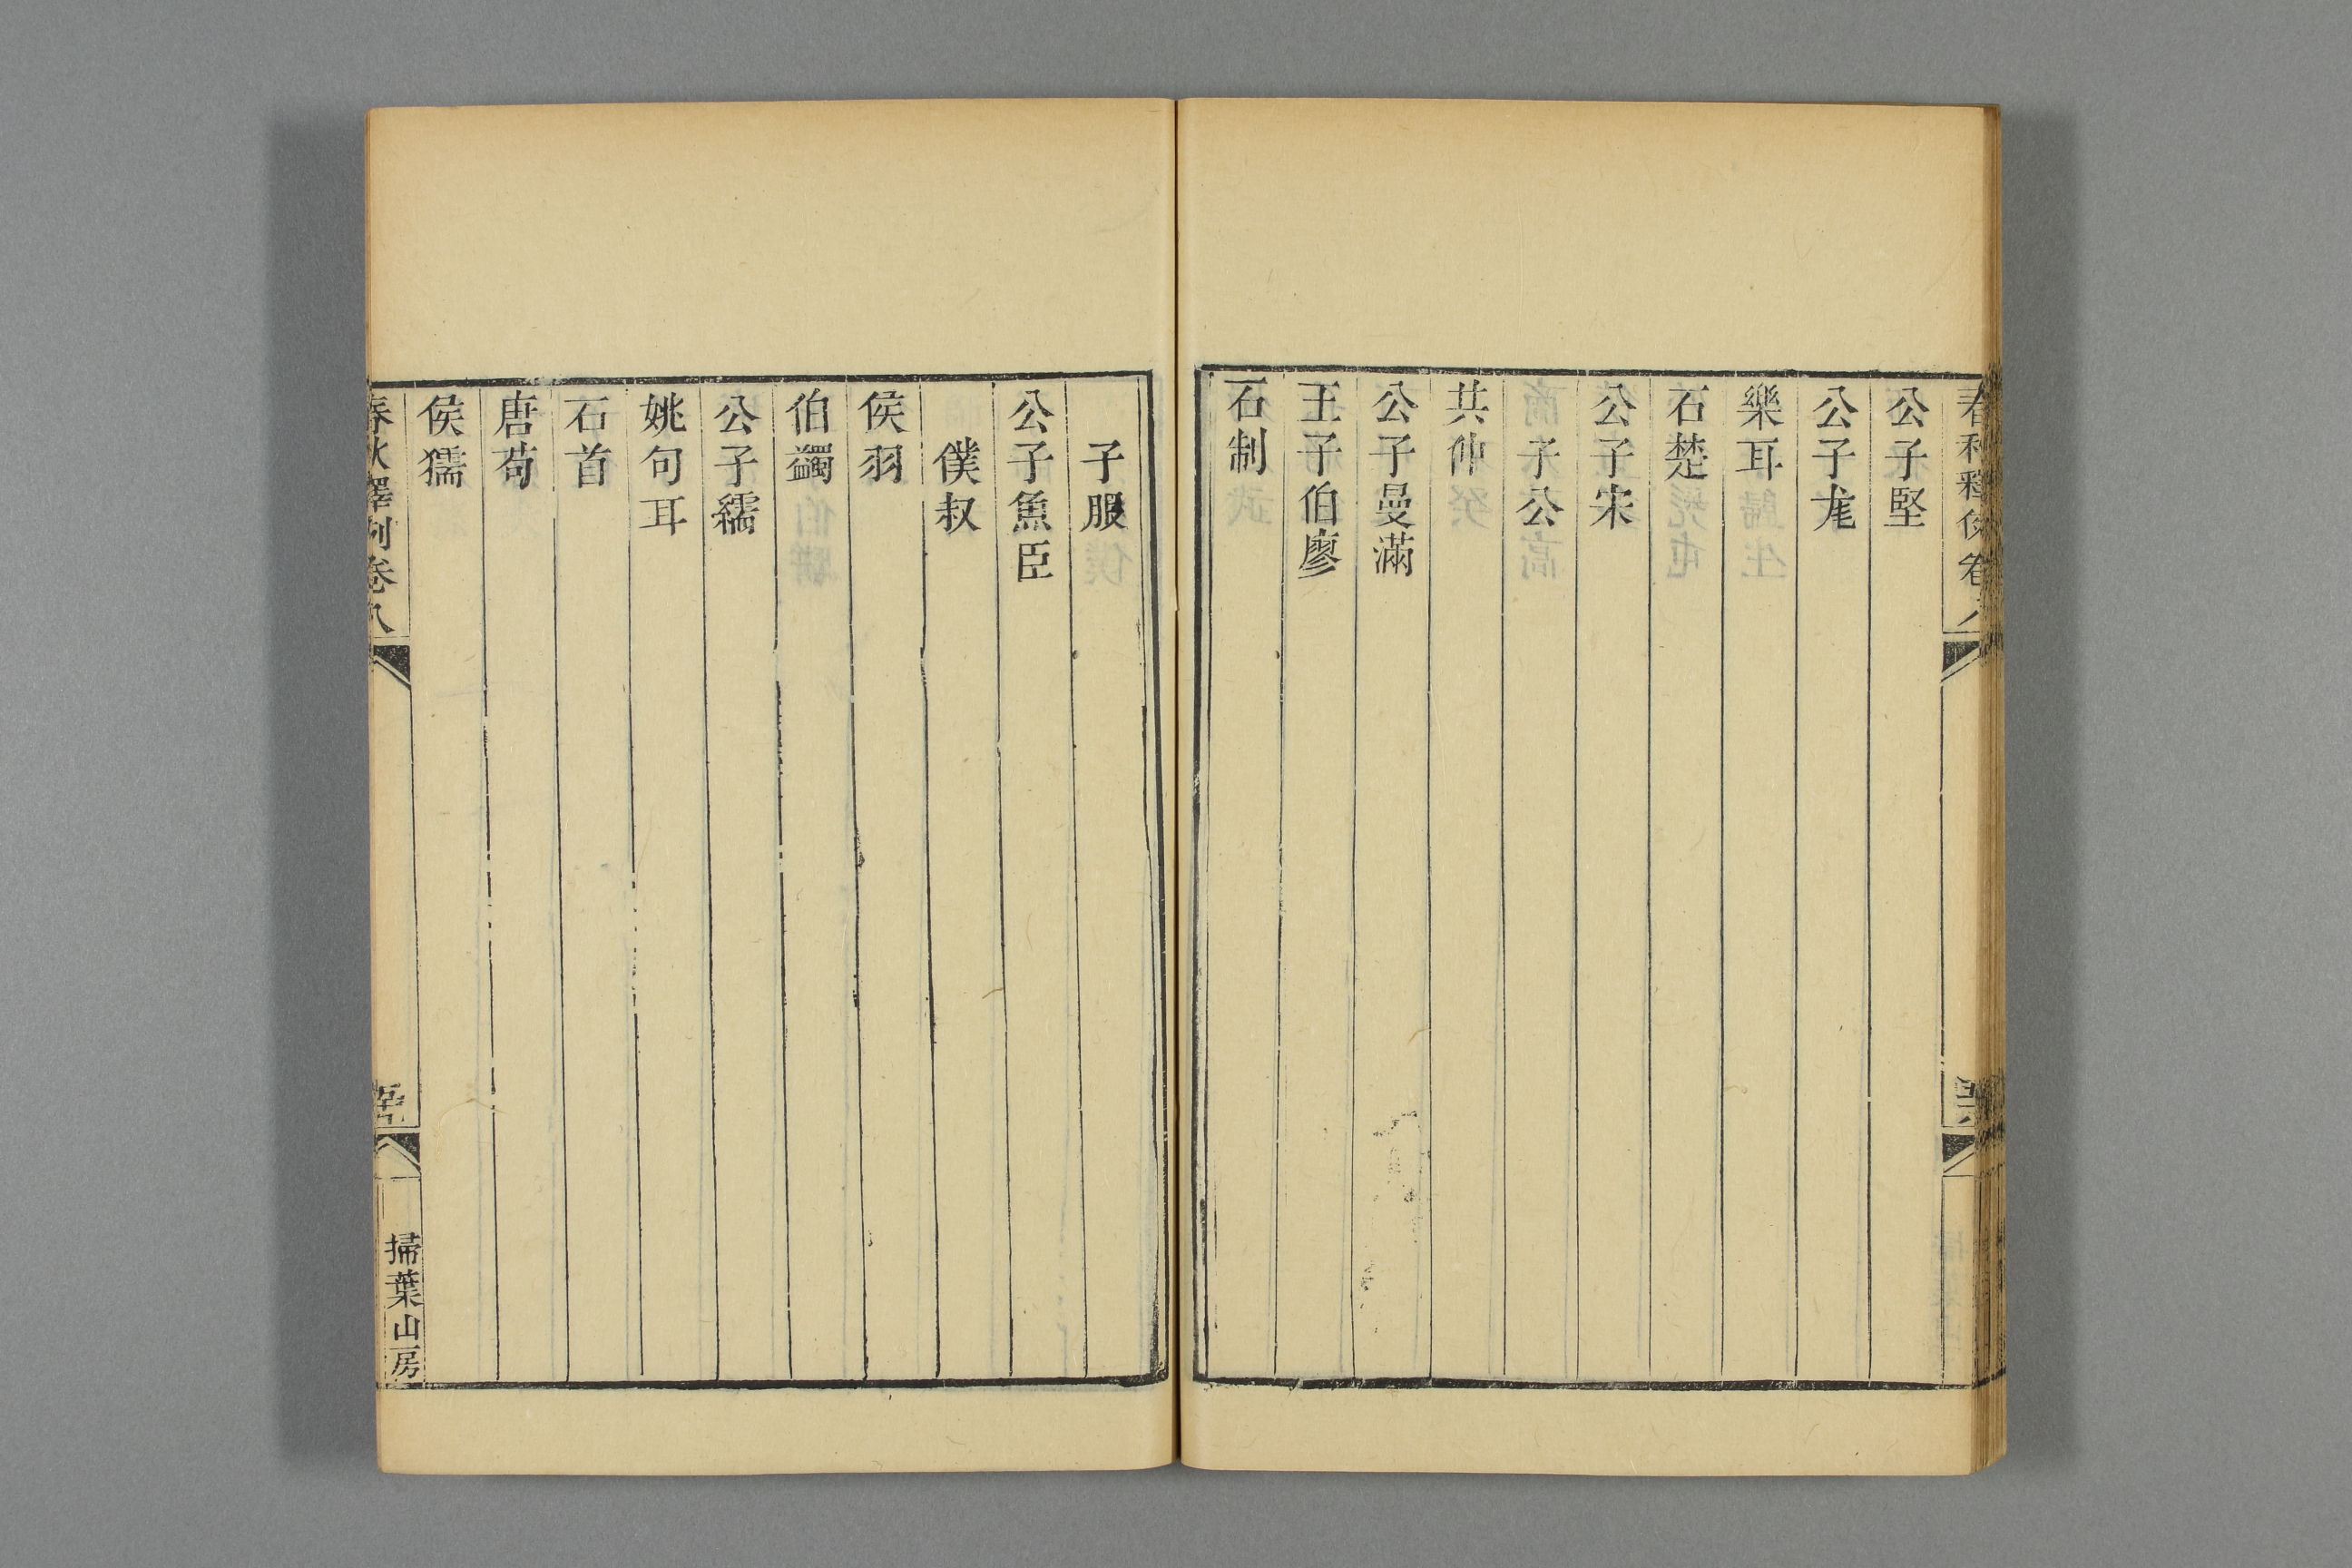 春秋釋例卷八
公子堅
公子尨
樂耳
石楚
公子宋
子公
共仲
公子曼滿
王子伯廖
石制
子服
公子魚臣
僕叔
侯羽
伯蠲
公子繻
姚句耳
石首
唐苟
侯獳
春秋釋例卷八
掃葉山房